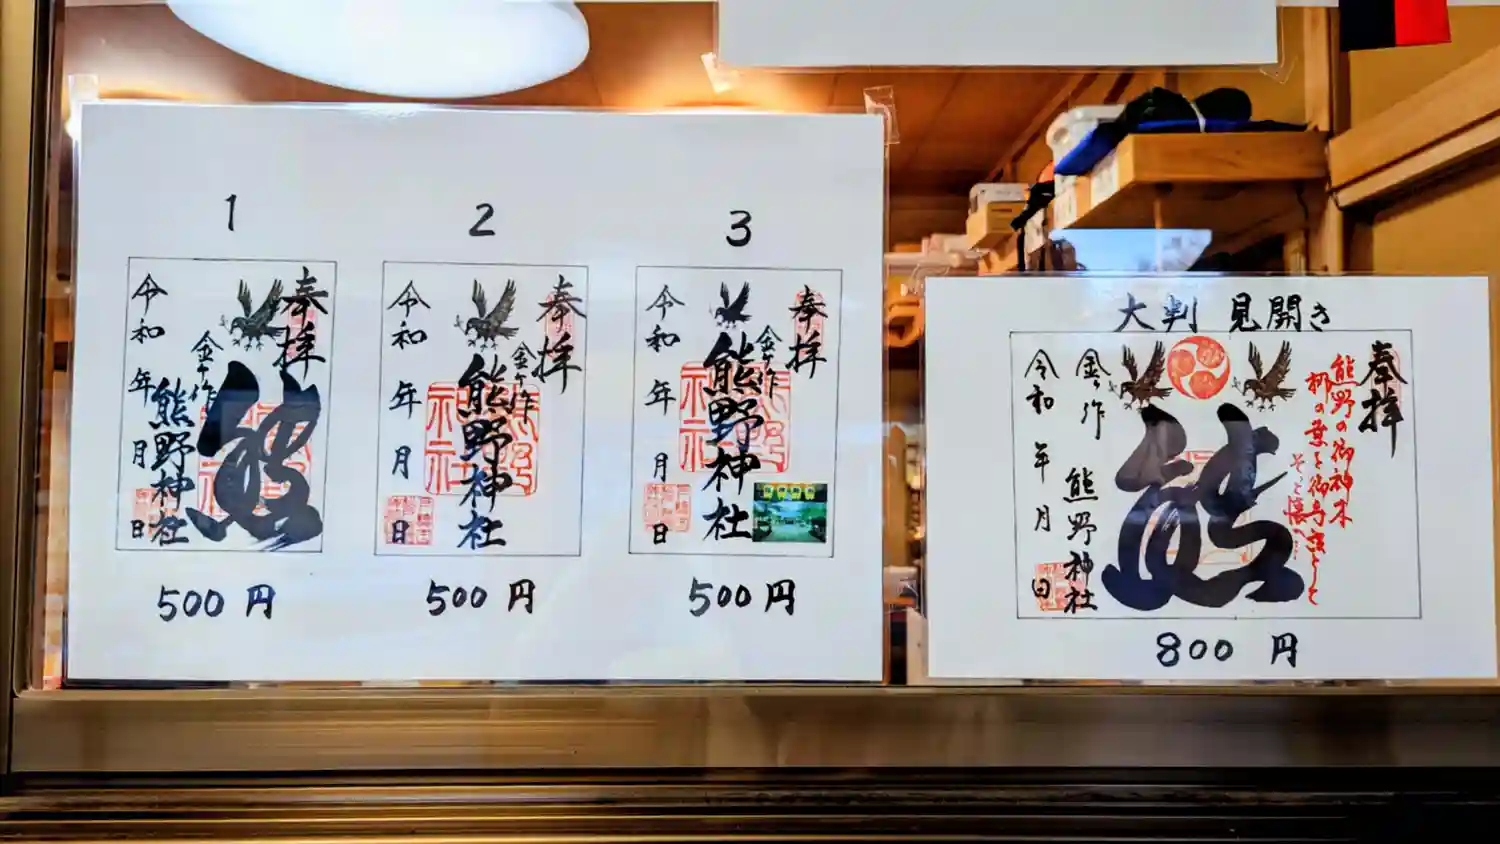 1
奉拝
金ケ作
熊
熊野神社
令和 年 月 日
500円
2
奉拝
金ケ作
熊野神社
令和 年 月 日
500円
3
奉拝
金ケ作
熊野神社
令和 年 月 日
500円
大判 見開き
奉拝
熊野の御神木
梛の葉を御守りとして
そっと懐へ…
熊
金ケ作
熊野神社
令和 年 月 日
800円